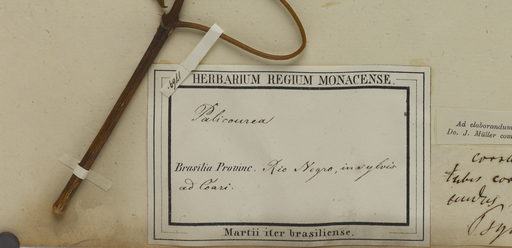 HERBARIUM REGIUM MONACENSE.
Palicourea
Brasilia Provinc. Rio Negro, in sylvis
ad Coari.
Martii iter brasiliense.
Ad elaborandum
Do. J. Müller com
tubis